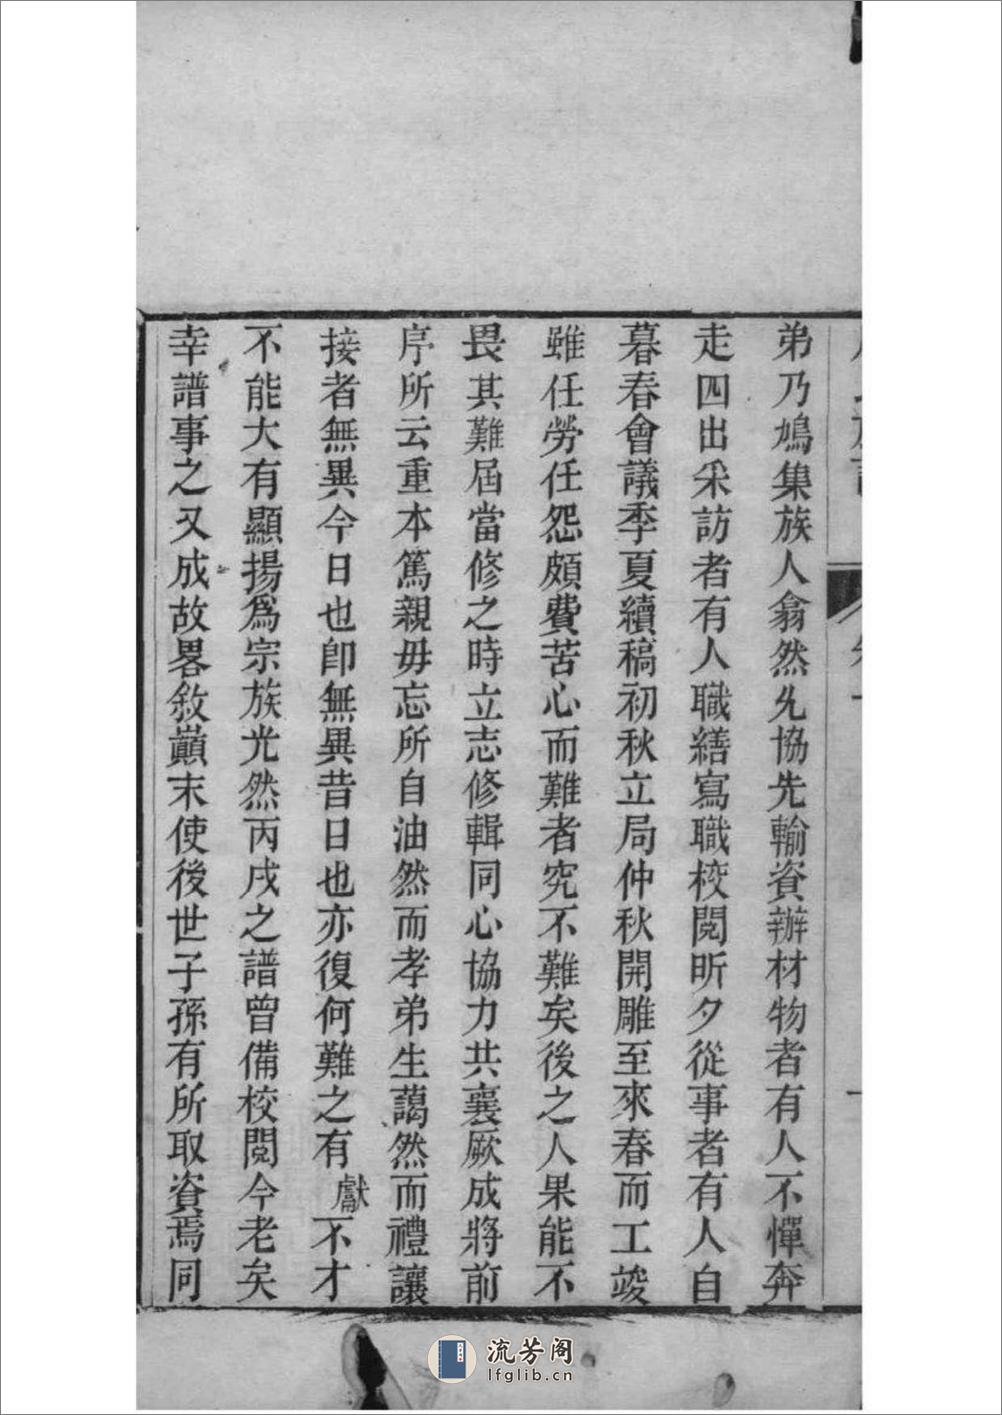 弟乃鳩集族人翕然允協先輸資辦材物者有人不憚奔
走四出采訪者有人職繕寫職校閱昕夕從事者有人自
暮春會議季夏續稿初秋立局仲秋開雕至來春而工竣
雖任勞任怨頗費苦心而難者究不難矣後之人果能不
畏其難屆當修之時立志修輯同心協力共襄厥成將前
序所云重本篤親毋忘所自油然而孝弟生藹然而禮讓
接者無異今日也卽無異昔日也亦復何難之有獻不才
不能大有顯揚爲宗族光然丙戌之譜曾備校閱今老矣
幸譜事之又成故畧敘巔末使後世子孫有所取資焉同
流芳阁
lfglib.cn